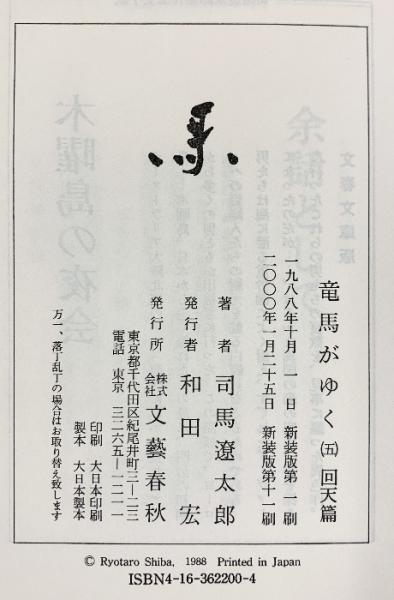 馬
竜馬がゆく ㈤ 回天篇
一九八八年十月 一 日 新装版第 一 刷
二〇〇〇年一月二十五日 新装版第十一刷
著 者 司馬遼太郎
発行者 和田 宏
発行所 株式会社 文藝春秋
東京都千代田区紀尾井町三―二三
電話 東京 三二六五―一二一一
印刷 大日本印刷
製本 大日本製本
万一、落丁乱丁の場合はお取り替え致します
© Ryotaro Shiba, 1988 Printed in Japan
ISBN4-16-362200-4
文春文庫版
木曜島の夜会